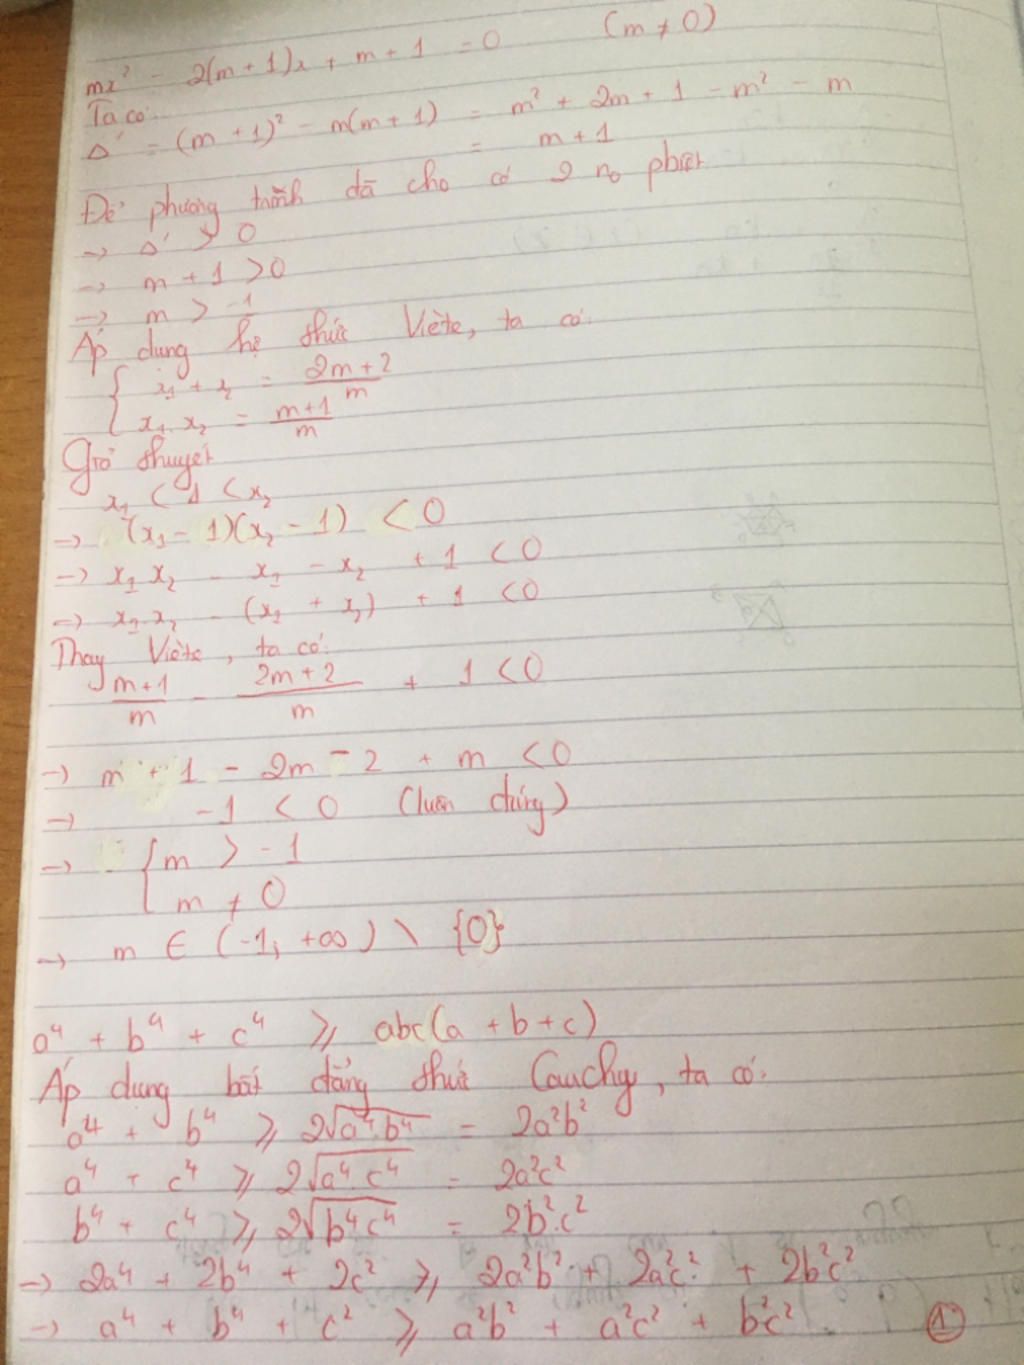 mx² - 2(m+1)x + m + 1 = 0 (m ≠ 0)
Ta có:
Δ' = (m + 1)² - m(m + 1) = m² + 2m + 1 - m² - m
= m + 1
Để phương trình đã cho có 2 no pbiệt
→ Δ' > 0
→ m + 1 > 0
→ m > -1
Áp dụng hệ thức Viète, ta có:
{ x₁ + x₂ = (2m+2)/m
x₁.x₂ = (m+1)/m
Giả thuyết
x₁ < 1 < x₂
→ (x₁ - 1)(x₂ - 1) < 0
→ x₁x₂ - x₁ - x₂ + 1 < 0
→ x₁.x₂ - (x₁ + x₂) + 1 < 0
Thay Viète, ta có:
(m+1)/m - (2m+2)/m + 1 < 0
→ m + 1 - 2m - 2 + m < 0
→ -1 < 0 (luôn đúng)
→ { m > -1
m ≠ 0
→ m ∈ (-1; +∞) \ {0}
a⁴ + b⁴ + c⁴ ⩾ abc(a + b + c)
Áp dụng bất đẳng thức Cauchy, ta có:
a⁴ + b⁴ ⩾ 2√(a⁴.b⁴) = 2a²b²
a⁴ + c⁴ ⩾ 2√(a⁴.c⁴) = 2a²c²
b⁴ + c⁴ ⩾ 2√(b⁴c⁴) = 2b².c²
→ 2a⁴ + 2b⁴ + 2c² ⩾ 2a²b² + 2a²c² + 2b²c²
→ a⁴ + b⁴ + c² ⩾ a²b² + a²c² + b²c² ①